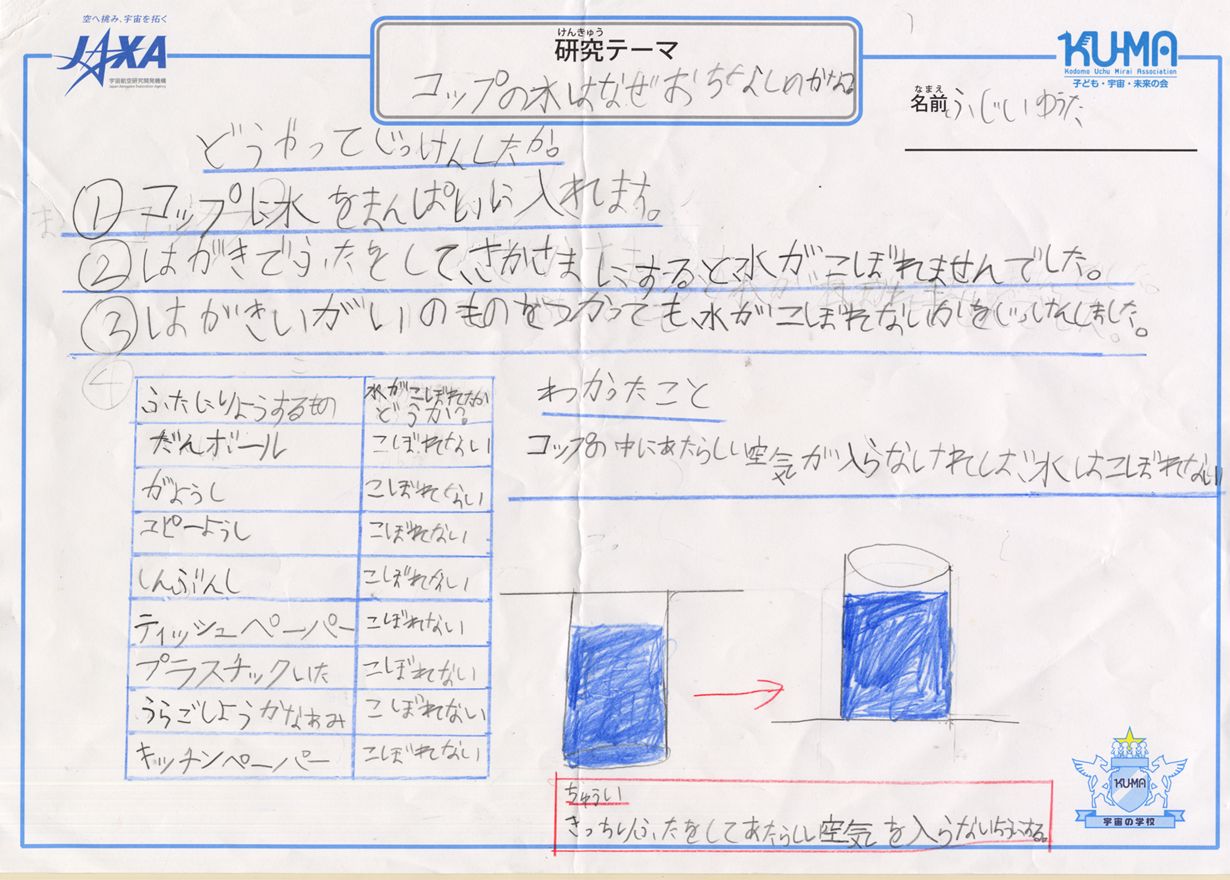 空へ挑み、宇宙を拓く
JAXA
宇宙航空研究開発機構
Japan Aerospace Exploration Agency
けんきゅう
研究テーマ
コップの水はなぜおちよしのがな
KU-MA
Kodomo Uchu Mirai Association
子ども・宇宙・未来の会
なまえ
名前 ふじいゆうた
どうやってじっけんしたか。
① コップに水をまんぱいに入れます。
② はがきでふたをして、さかさまにすると水がこぼれませんでした。
③ はがきいがいのものをつかっても、水がこぼれないかをじっけんしました。
④
ふたにりようするもの 水がこぼれなかどうか?
だんボール こぼれない
がようし こぼれない
コピーようし こぼれない
しんぶんし こぼれない
ティッシュペーパー こぼれない
プラスチックいた こぼれない
うらごしようかなあみ こぼれない
キッチンペーパー こぼれない
わかったこと
コップの中にあたらしい空気が入らなければ、水はこぼれない
ちゅうい
きっちりふたをしてあたらしい空気を入らないようにする。
KU-MA
宇宙の学校